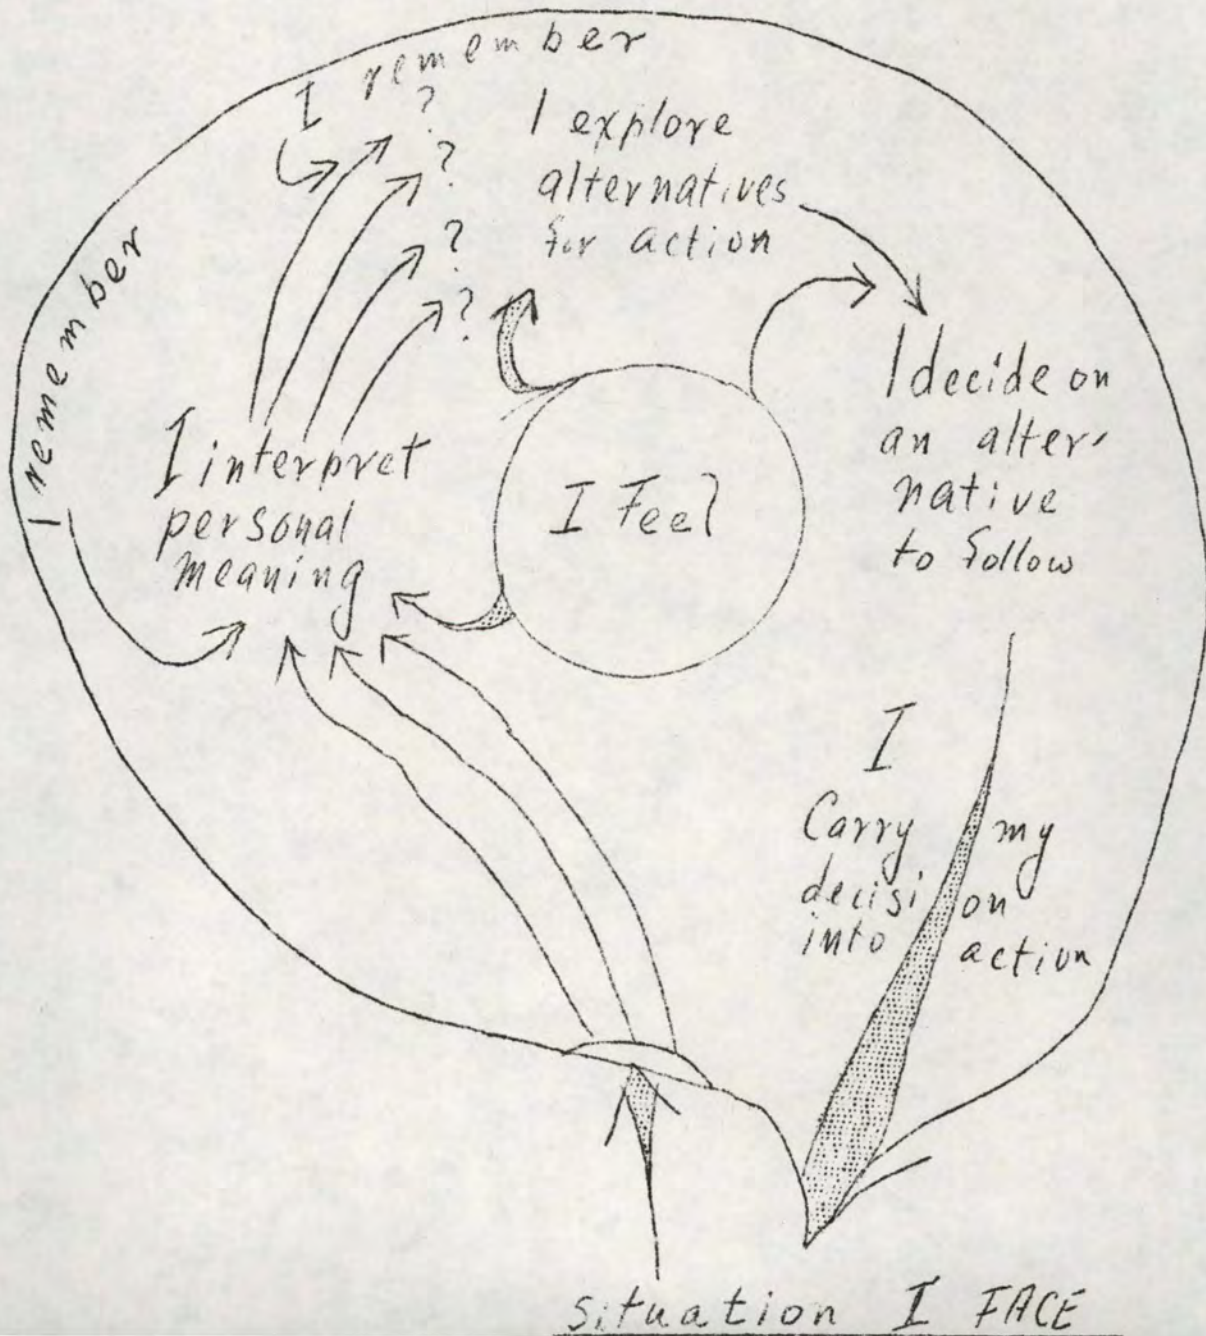 I remember
?
?
?
?
I explore
alternatives
for action
I remember
I interpret
personal
meaning
I Feel
I decide on
an alter-
native
to follow
I
Carry my
decision
into action
situation I FACE